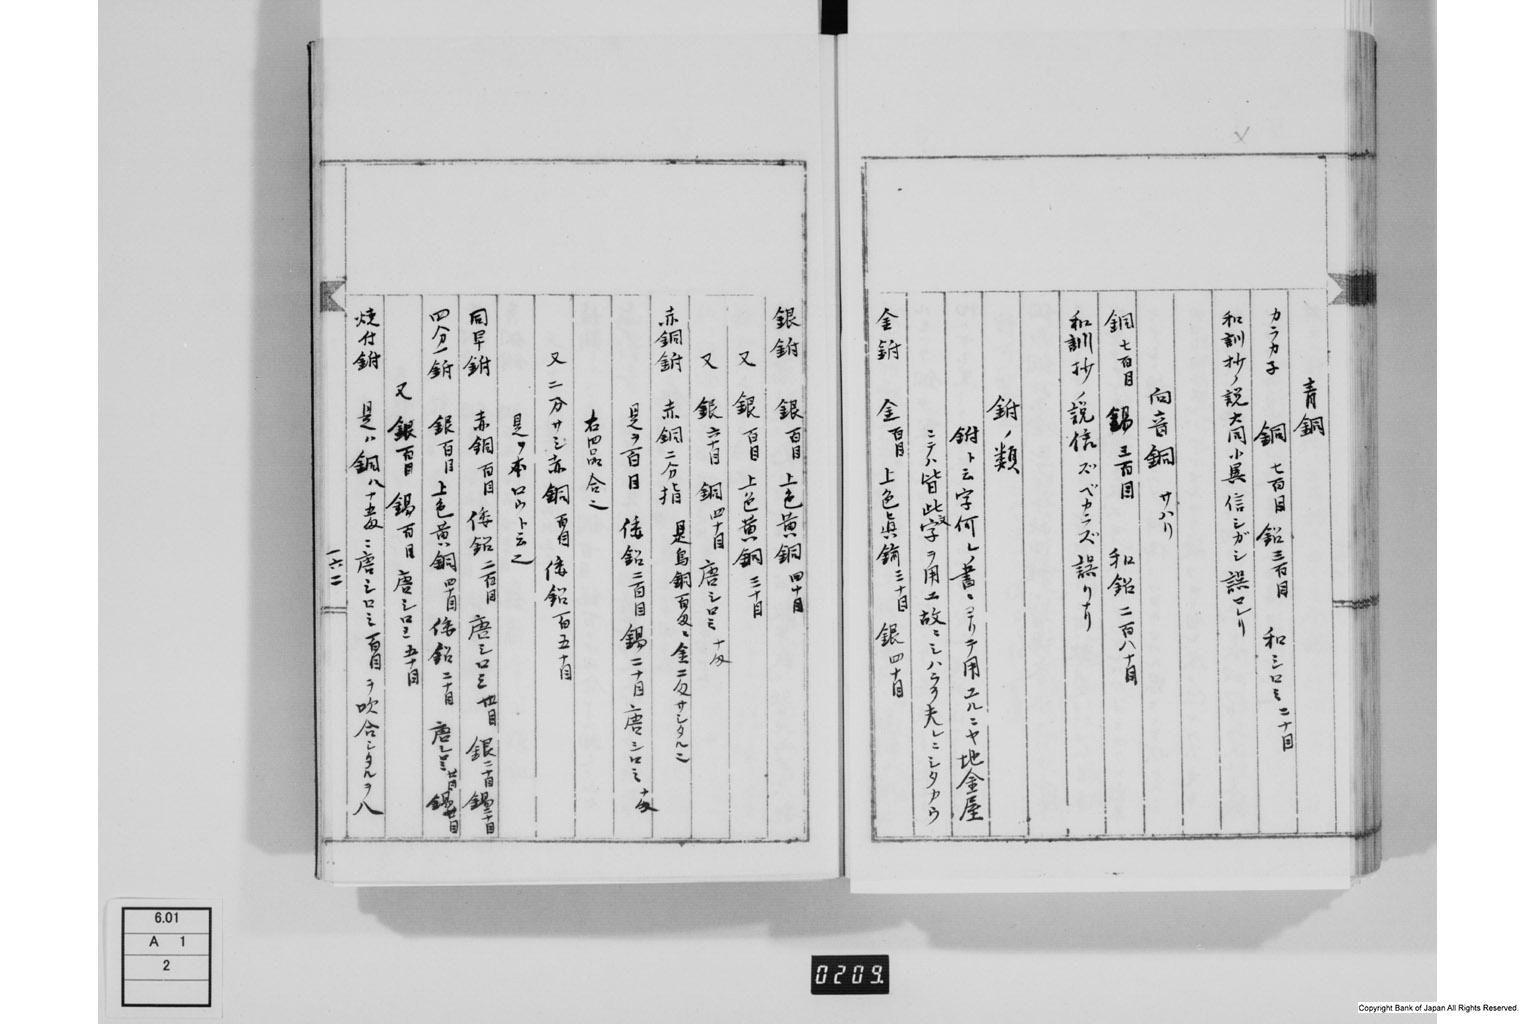 青銅
カラカ子 銅 七百目 鉛 三百目 和シロミ 二十目
和訓抄ノ説大同小異信シガシ誤レリ
向音銅 サハリ
銅 七百目 錫 三百目 和鉛 二百八十目
和訓抄ノ説信ズベカラズ誤リナリ
鉜ノ類
鉜ト云字何レノ書ニヨリテ用エルニヤ地金屋
ニテハ皆此字ヲ用エ故ニシハラク夫レニシタカウ
金鉜 金百目 上色真鍮 三十目 銀四十目
銀鉜 銀百目 上色黄銅 四十目
又 銀百目 上色黄銅 三十目
又 銀六十目 銅四十目 唐シロミ 十匁
赤銅鉜 赤銅二分指 是烏銅百匁ニ金二匁サシタルニ
是ヲ百目 倭鉛二百目 錫二十目 唐シロミ 十匁
右四品合之
又二分サシ赤銅 百目 倭鉛 百五十目
是ヲ本ロウト云之
同早鉜 赤銅百目 倭鉛二百目 唐シロミ 廿目 銀二十目 錫二十目
四分一鉜 銀百目 上色黄銅四十目 倭鉛二十目 唐シロミ 廿目 錫廿目
又 銀百目 錫百目 唐シロミ 五十目
焼付鉜 是ハ銅八十五匁ニ唐シロミ百目ヲ吹合シタルヲ八
一六二
6.01
A 1
2
0209.
Copyright Bank of Japan All Rights Reserved.